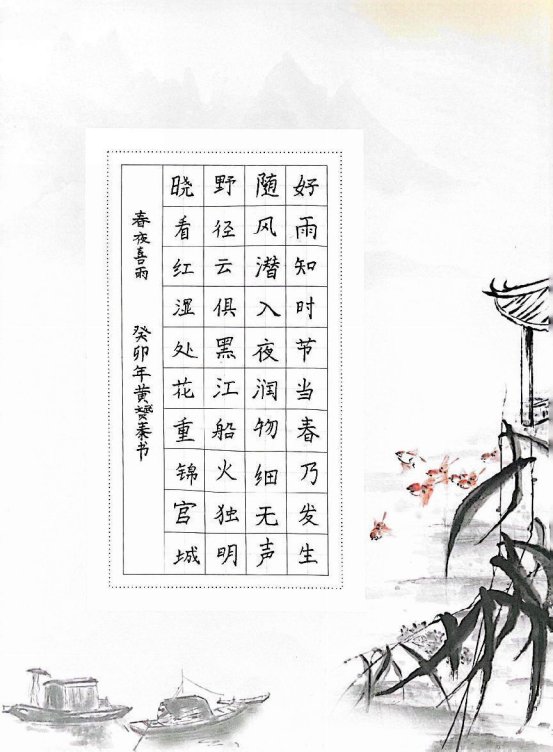 好雨知时节当春乃发生
随风潜入夜润物细无声
野径云俱黑江船火独明
晓看红湿处花重锦官城
春夜喜雨 癸卯年黄秦书